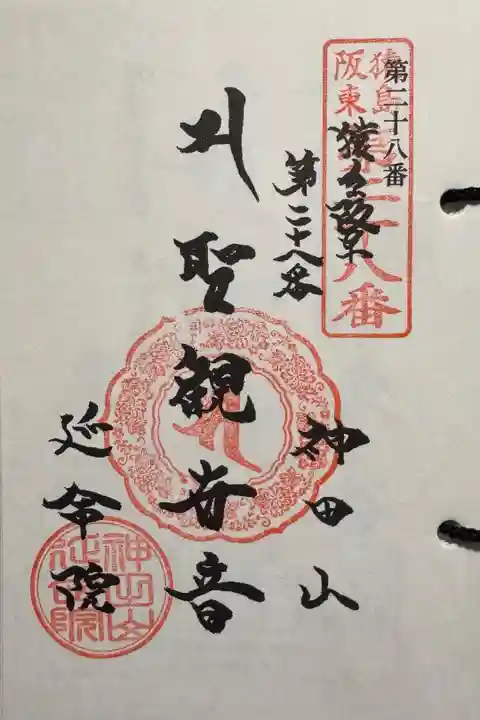 第二十八番
猿島
阪東
第二十八番
猿島阪東
第二十八番
聖観世音
神田山
延命院
神田山
延命院